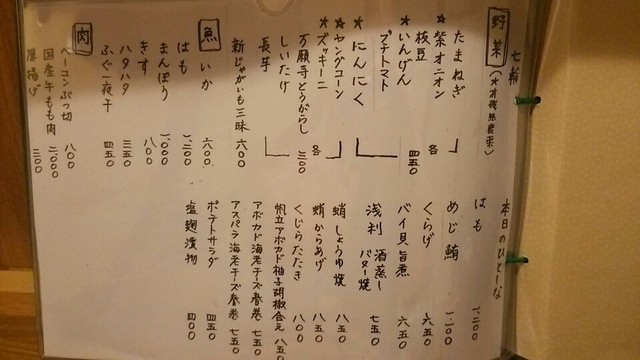 七輪
野菜(★有機無農薬)
たまねぎ
★紫オニオン
枝豆
★いんげん
プチトマト
各 四五〇
★にんにく
★ヤングコーン
★ズッキーニ
万願寺とうがらし
しいたけ
長芋
各 三〇〇
新じゃがいも三昧 六〇〇
魚
いか 六〇〇
はも 一、二〇〇
まんぼう 一、〇〇〇
きす 八〇〇
ハタハタ 三五〇
ふぐ一夜干 四五〇
肉
ベーコンぶつ切 八〇〇
国産牛もも肉 二、〇〇〇
厚揚げ 三〇〇
本日のひとしな
はも 一、二〇〇
めじ鮪 一、二〇〇
くらげ 六五〇
バイ貝旨煮 六五〇
浅利 酒蒸し バター焼 七五〇
蛸しょうゆ焼 八五〇
蛸からあげ 八五〇
くじらたたき 八〇〇
帆立アボカド柚子胡椒合え 八五〇
アボカド海老チーズ春巻 七五〇
アスパラ海老チーズ春巻 七五〇
ポテトサラダ 四五〇
塩麹漬物 四〇〇